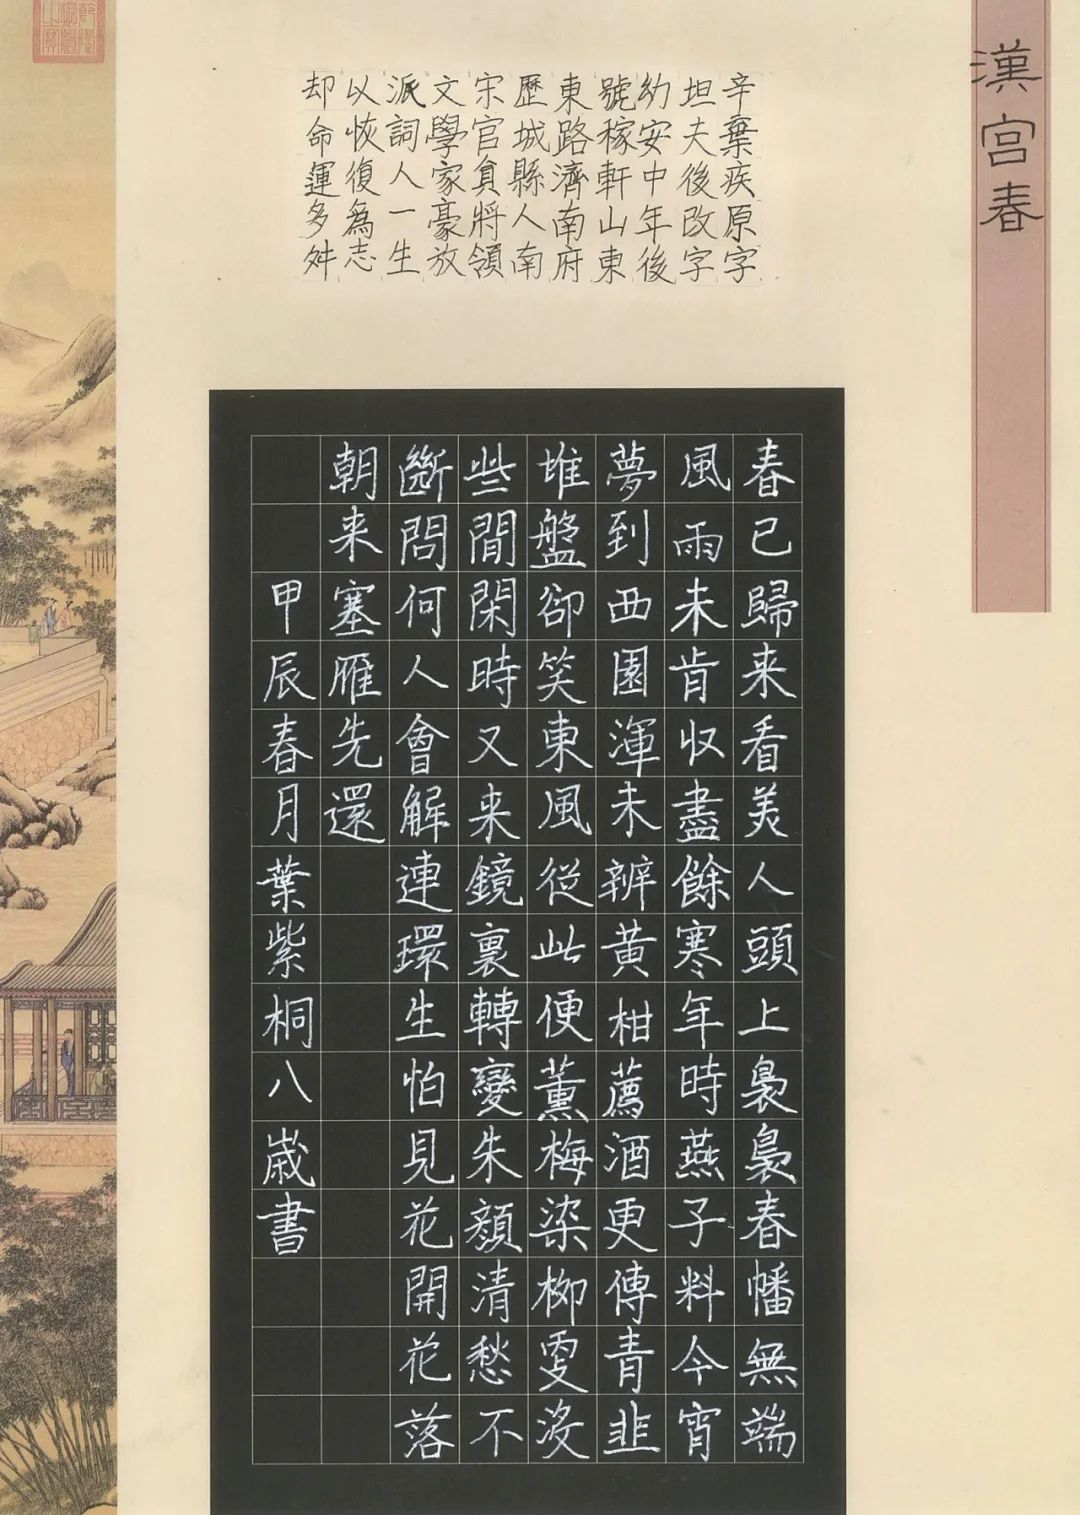 漢宮春
辛棄疾原字
坦夫後改字
幼安中年後
號稼軒山東
東路濟南府
歷城縣人南
宋官員將領
文學家豪放
派詞人一生
以恢復為志
却命運多舛
春已歸来看美人頭上裊裊春幡無端
風雨未肯收盡餘寒年時燕子料今宵
夢到西園渾未辨黃柑薦酒更傳青韭
堆盤卻笑東風從此便薫梅染柳更没
些閒閑時又来鏡裏轉變朱顏清愁不
斷問何人會解連環生怕見花開花落
朝来塞雁先還
甲辰春月葉紫桐八歲書